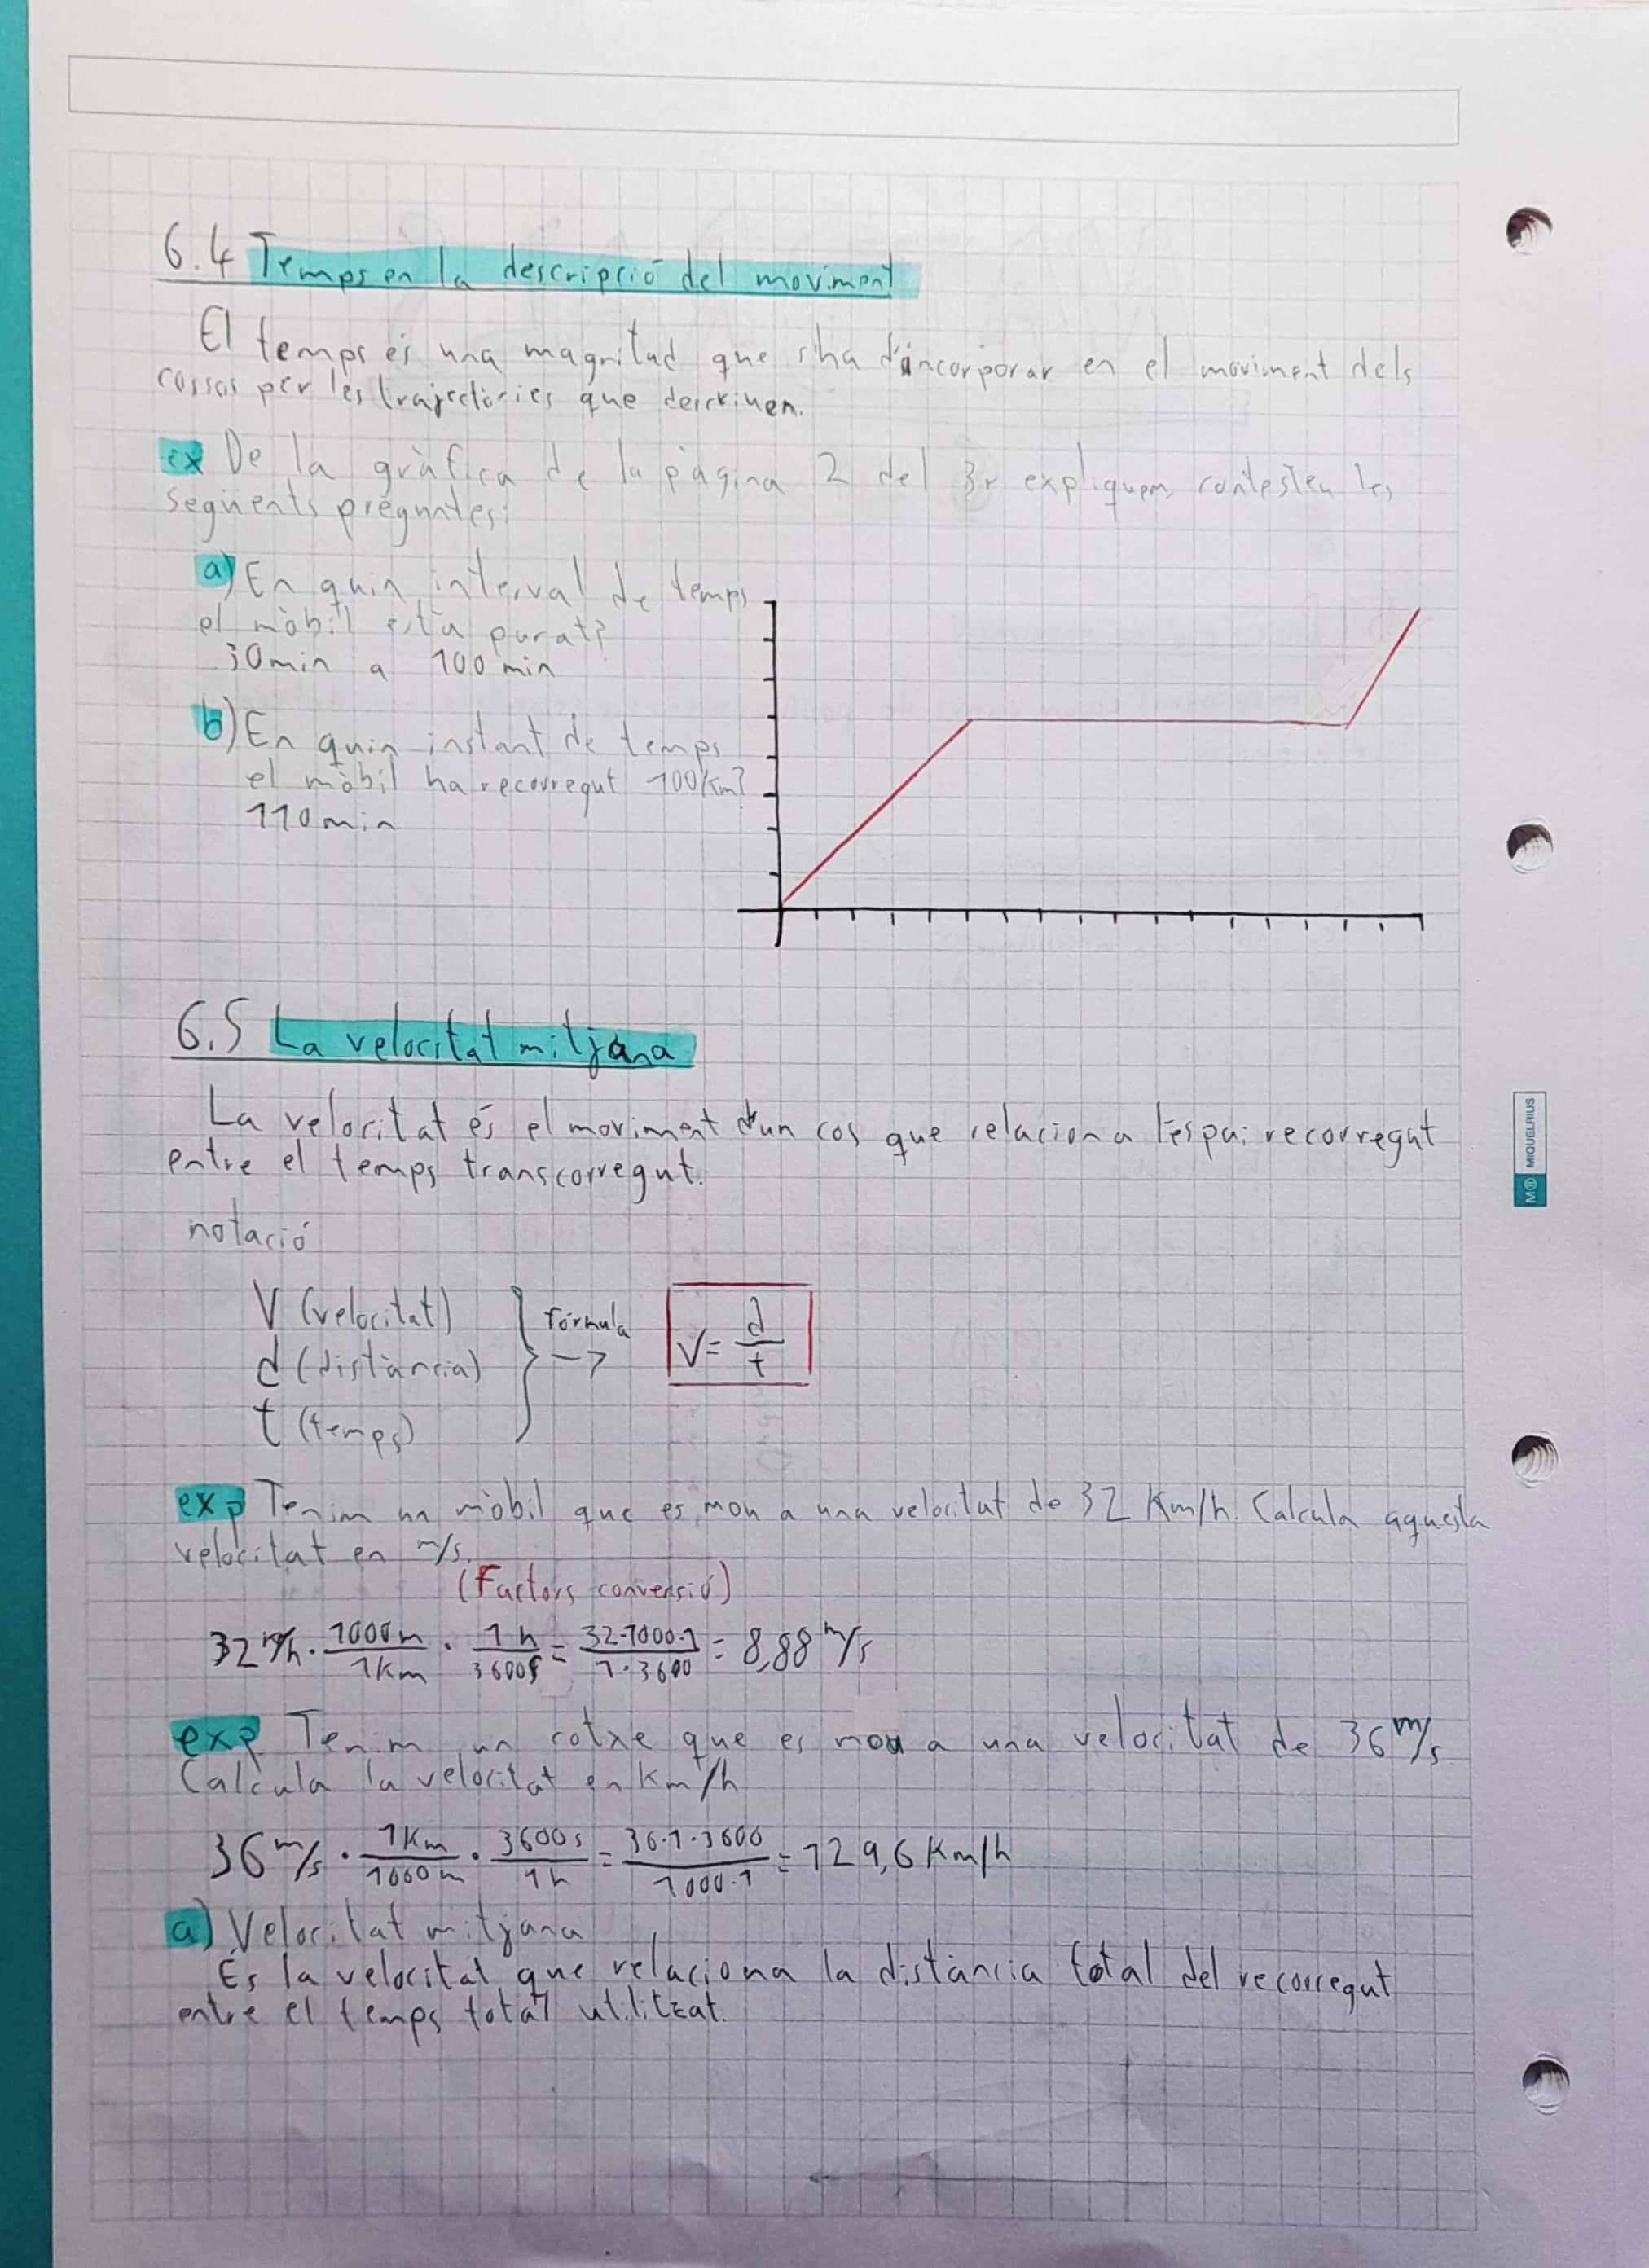 6.4 Temps en la descripció del moviment
El temps és una magnitud que s'ha d'incorporar en el moviment dels
cossos per les trajectòries que descriuen.
ex De la gràfica de la pàgina 2 del 3r expliquem, contesteu les
següents preguntes:
a) En quin interval de temps
el mòbil està parat?
30min a 100 min
b) En quin instant de temps
el mòbil ha recorregut 100km?
110min
6.5 La velocitat mitjana
La velocitat és el moviment d'un cos que relaciona l'espai recorregut
entre el temps transcorregut.
notació
V (velocitat)
d (distància)
t (temps)
fórmula
->
V= d/t
exp Tenim un mòbil que es mou a una velocitat de 32 Km/h. Calcula aquesta
velocitat en m/s.
(Factors conversió)
32 Km/h · 1000m/1Km · 1h/3600s = 32·1000·1/1·3600 = 8,88 m/s
exp Tenim un cotxe que es mou a una velocitat de 36 m/s
Calcula la velocitat en Km/h
36 m/s · 1Km/1000m · 3600s/1h = 36·1·3600/1000·1 = 129,6 Km/h
a) Velocitat mitjana
És la velocitat que relaciona la distància total del recorregut
entre el temps total utilitzat.
M® MIQUELRIUS